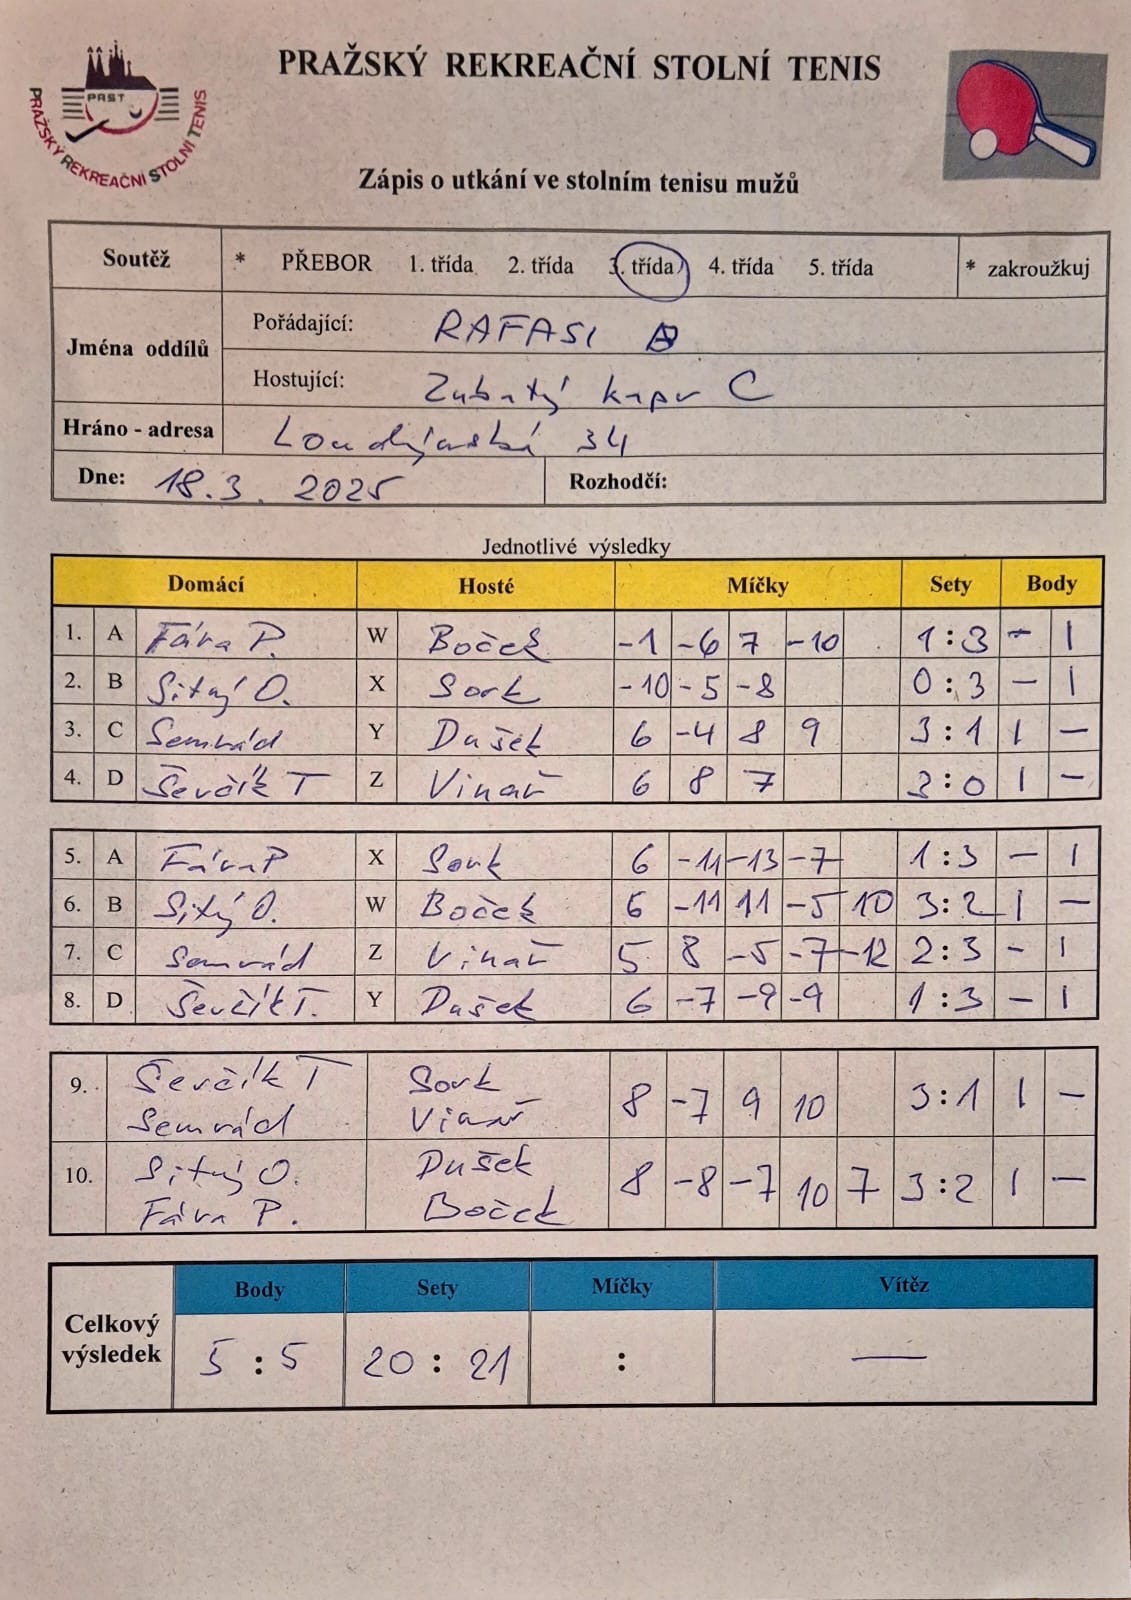 PRAŽSKÝ REKREAČNÍ STOLNÍ TENIS
PRST
PRAŽSKÝ REKREAČNÍ STOLNÍ TENIS
Zápis o utkání ve stolním tenisu mužů
Soutěž * PŘEBOR 1. třída 2. třída 3. třída 4. třída 5. třída * zakroužkuj
Jména oddílů
Pořádající: RAFASI B
Hostující: Zubatý kapr C
Hráno - adresa Loudýnská 34
Dne: 18.3. 2025 Rozhodčí:
Jednotlivé výsledky
Domácí Hosté Míčky Sety Body
1. A Fára P. W Boček -1 -6 7 -10 1:3 - 1
2. B Sitný O. X Sork -10 -5 -8 0:3 - 1
3. C Semrád Y Dušek 6 -4 8 9 3:1 1 -
4. D Ševčík T Z Vinař 6 8 7 3:0 1 -
5. A Fára P X Sork 6 -11 -13 -7 1:3 - 1
6. B Sitný O. W Boček 6 -11 11 -5 10 3:2 1 -
7. C Semrád Z Vinař 5 8 -5 -7 -12 2:3 - 1
8. D Ševčík T. Y Dušek 6 -7 -9 -9 1:3 - 1
9. Ševčík T Sork 8 -7 9 10 3:1 1 -
Semrád Vinař
10. Sitný O. Dušek 8 -8 -7 10 7 3:2 1 -
Fára P. Boček
Celkový výsledek
Body Sety Míčky Vítěz
5 : 5 20 : 21 : —